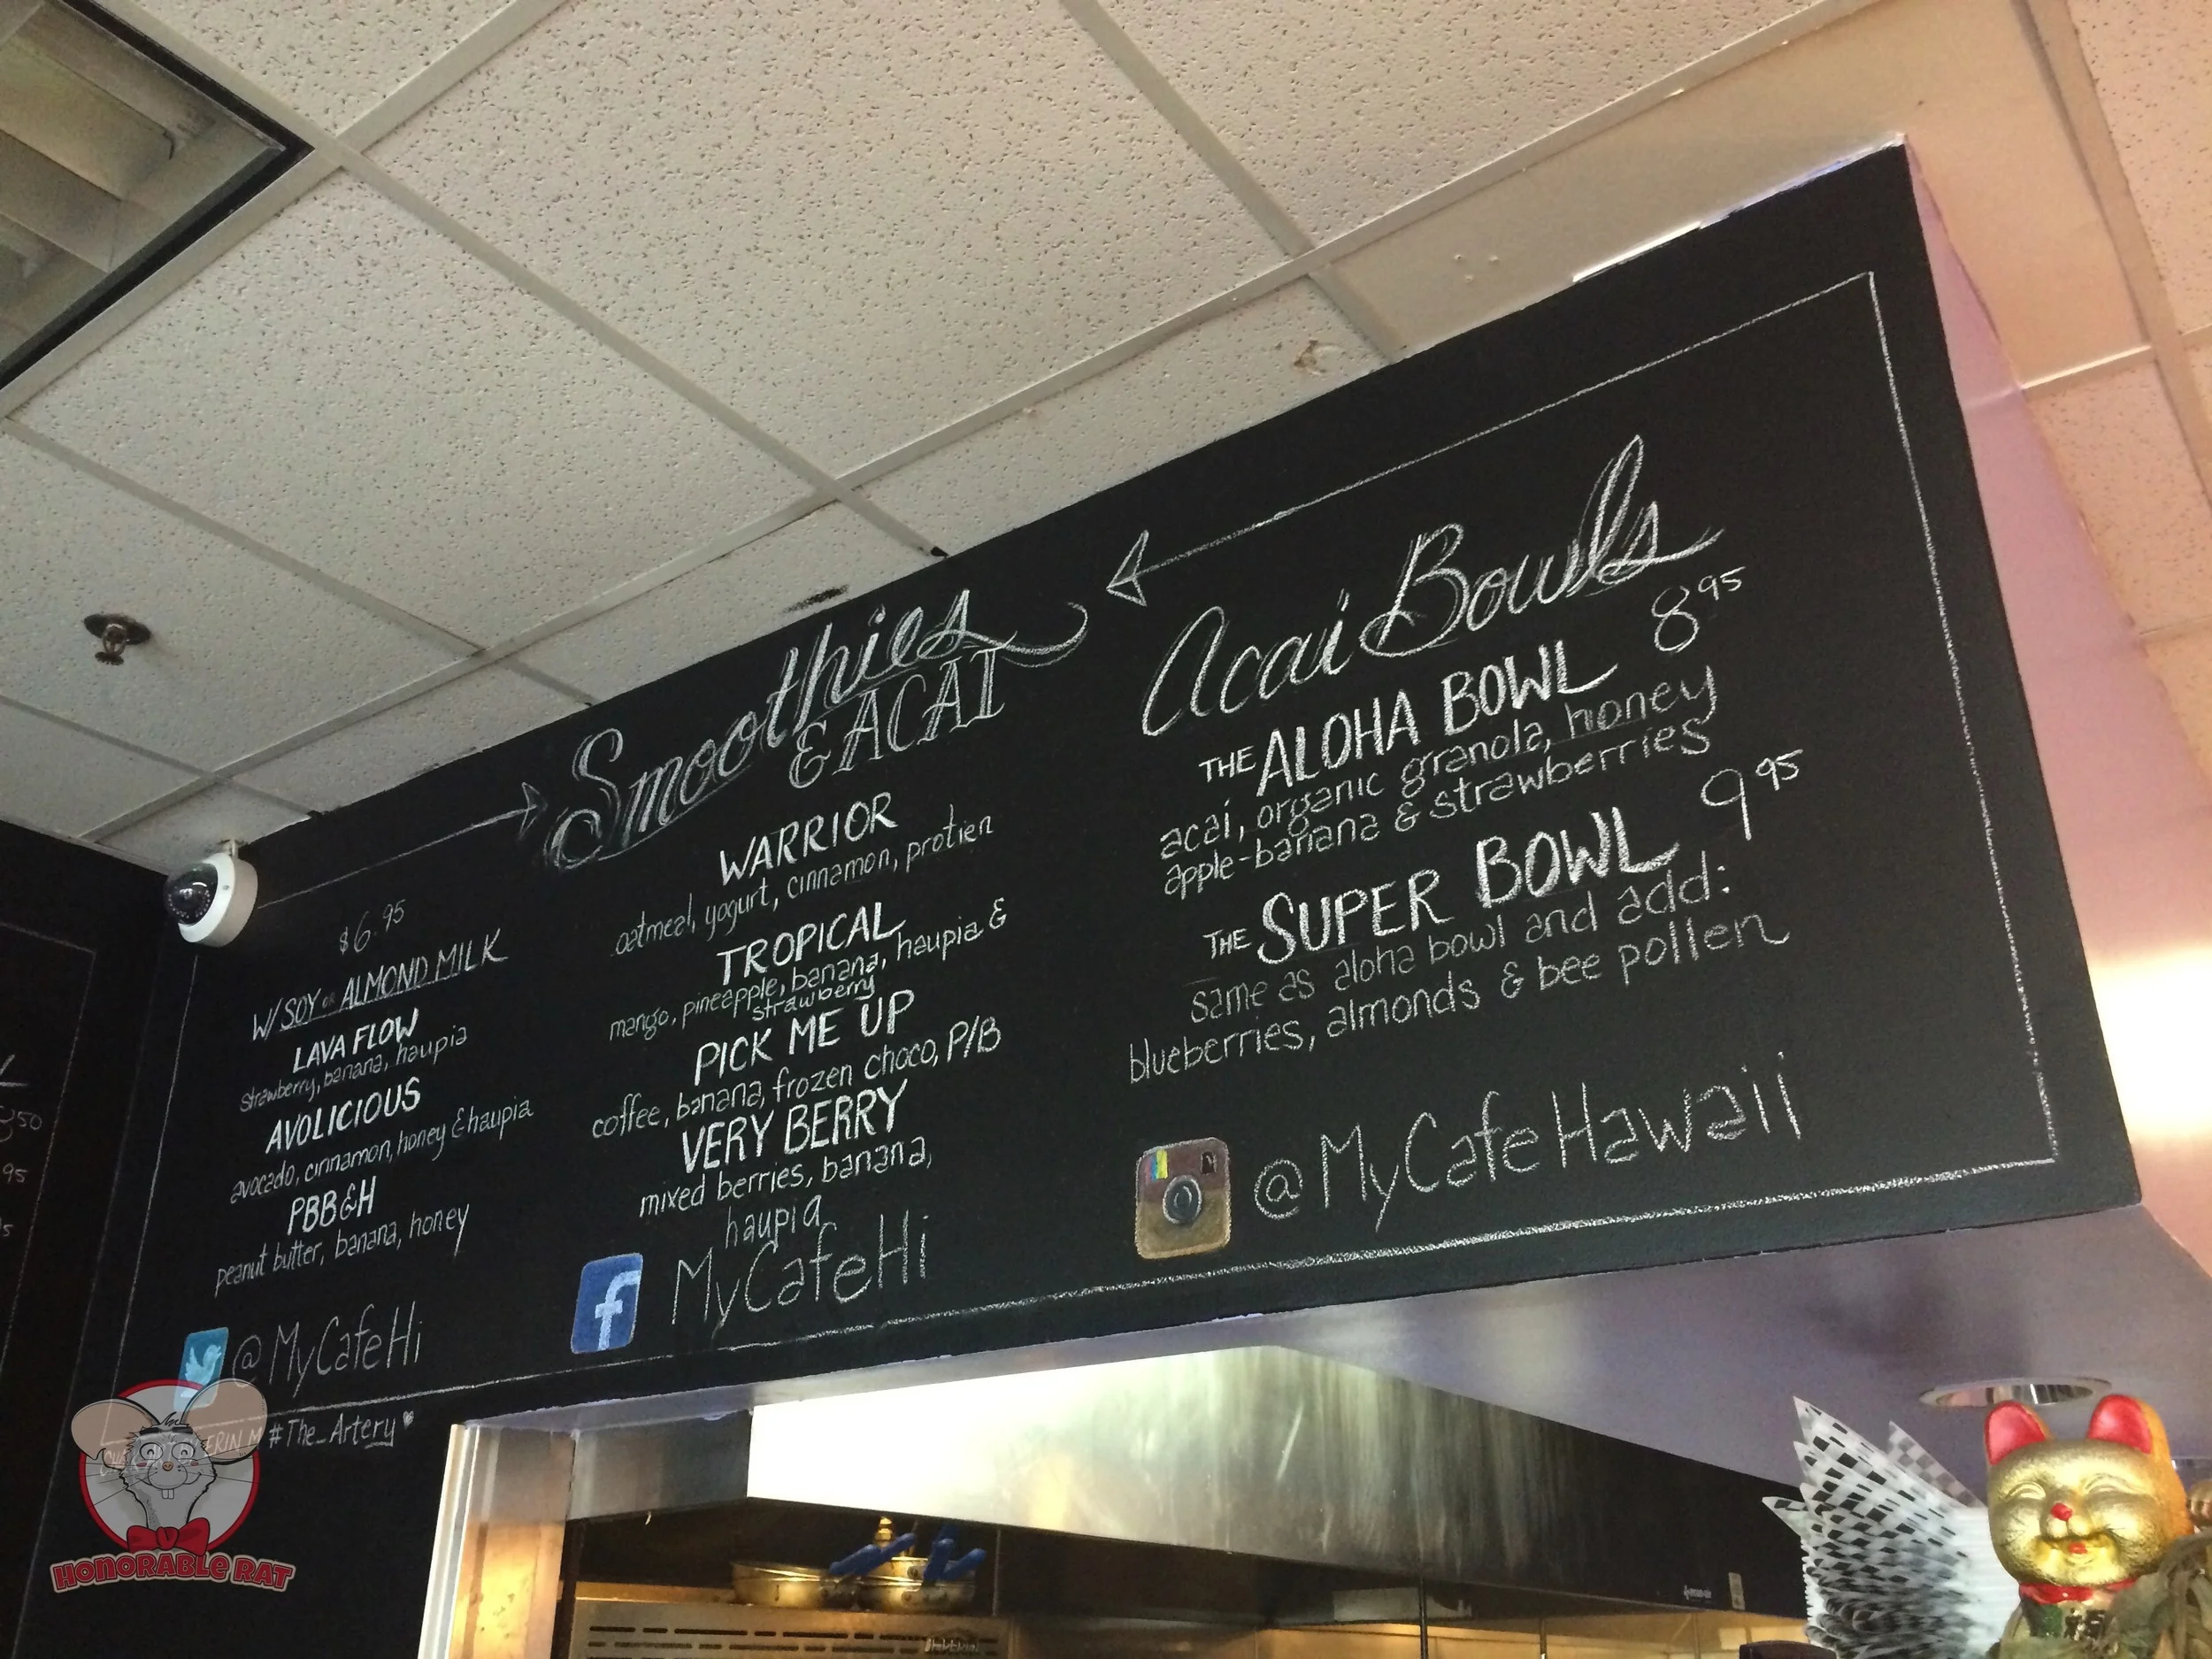 Smoothies
& ACAI
$6.95
W/ SOY or ALMOND MILK
LAVA FLOW
strawberry, banana, haupia
AVOLICIOUS
avocado, cinnamon, honey & haupia
PBB&H
peanut butter, banana, honey
@MyCafeHi
#The_Artery
WARRIOR
oatmeal, yogurt, cinnamon, protien
TROPICAL
mango, pineapple, banana, haupia &
strawberry
PICK ME UP
coffee, banana, frozen choco, P/B
VERY BERRY
mixed berries, banana,
haupia
f MyCafeHi
Acai Bowls
THE ALOHA BOWL 8 95
acai, organic granola, honey
apple-banana & strawberries
THE SUPER BOWL 9 95
same as aloha bowl and add:
blueberries, almonds & bee pollen
@MyCafeHawaii
50
95
HONORABLE RAT